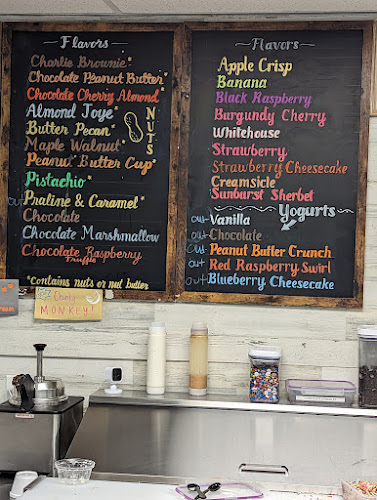 Flavors
Charlie Brownie*
Chocolate Peanut Butter*
Chocolate Cherry Almond*
Almond Joye*
Butter Pecan*
Maple Walnut*
Peanut Butter Cup*
NUTS
Pistachio*
out Praline & Caramel*
Chocolate
Chocolate Marshmallow
Chocolate Raspberry
Truffle
*Contains nuts or nut butter
Flavors
Apple Crisp
Banana
Black Raspberry
Burgundy Cherry
Whitehouse
Strawberry
Strawberry Cheesecake
Creamsicle
Sunburst Sherbet
Yogurts
out Vanilla
out Chocolate
out Peanut Butter Crunch
out Red Raspberry Swirl
out Blueberry Cheesecake
Chefs
MONKEY!